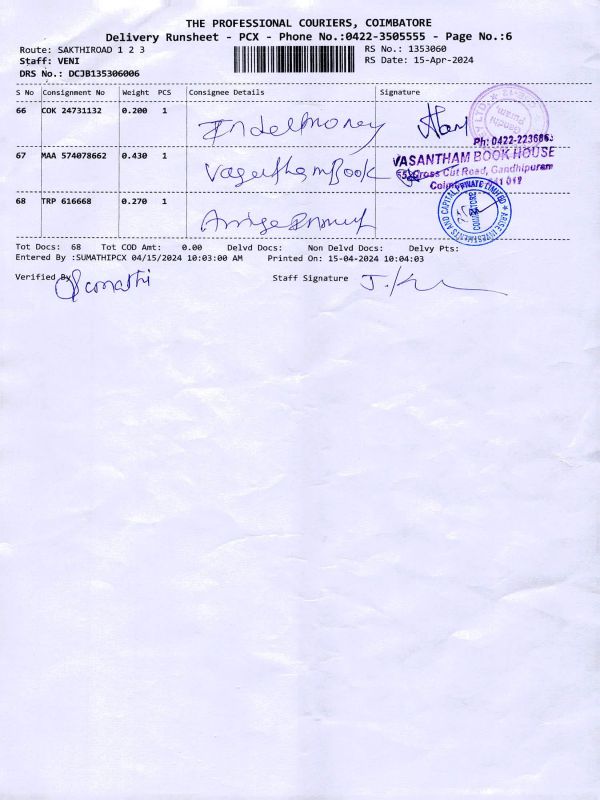 THE PROFESSIONAL COURIERS, COIMBATORE
Delivery Runsheet - PCX - Phone No.:0422-3505555 - Page No.:6
Route: SAKTHIROAD 1 2 3
RS No.: 1353060
Staff: VENI
RS Date: 15-Apr-2024
DRS No.: DCJB135306006
S No Consignment No Weight PCS Consignee Details Signature
66 COK 24731132 0.200 1 Indelmoney
Ph: 0422-223686
67 MAA 574078662 0.430 1 Book
VASANTHAM BOOK HOUSE
Cross Cut Road, Gandhipuram
68 TRP 616668 0.270 1
ARISE INVESTMENTS AND CAPITAL PRIVATE LIMITED
COIMBATORE
Tot Docs: 68 Tot COD Amt: 0.00 Delvd Docs: Non Delvd Docs: Delvy Pts:
Entered By :SUMATHIPCX 04/15/2024 10:03:00 AM Printed On: 15-04-2024 10:04:03
Verified By
Staff Signature